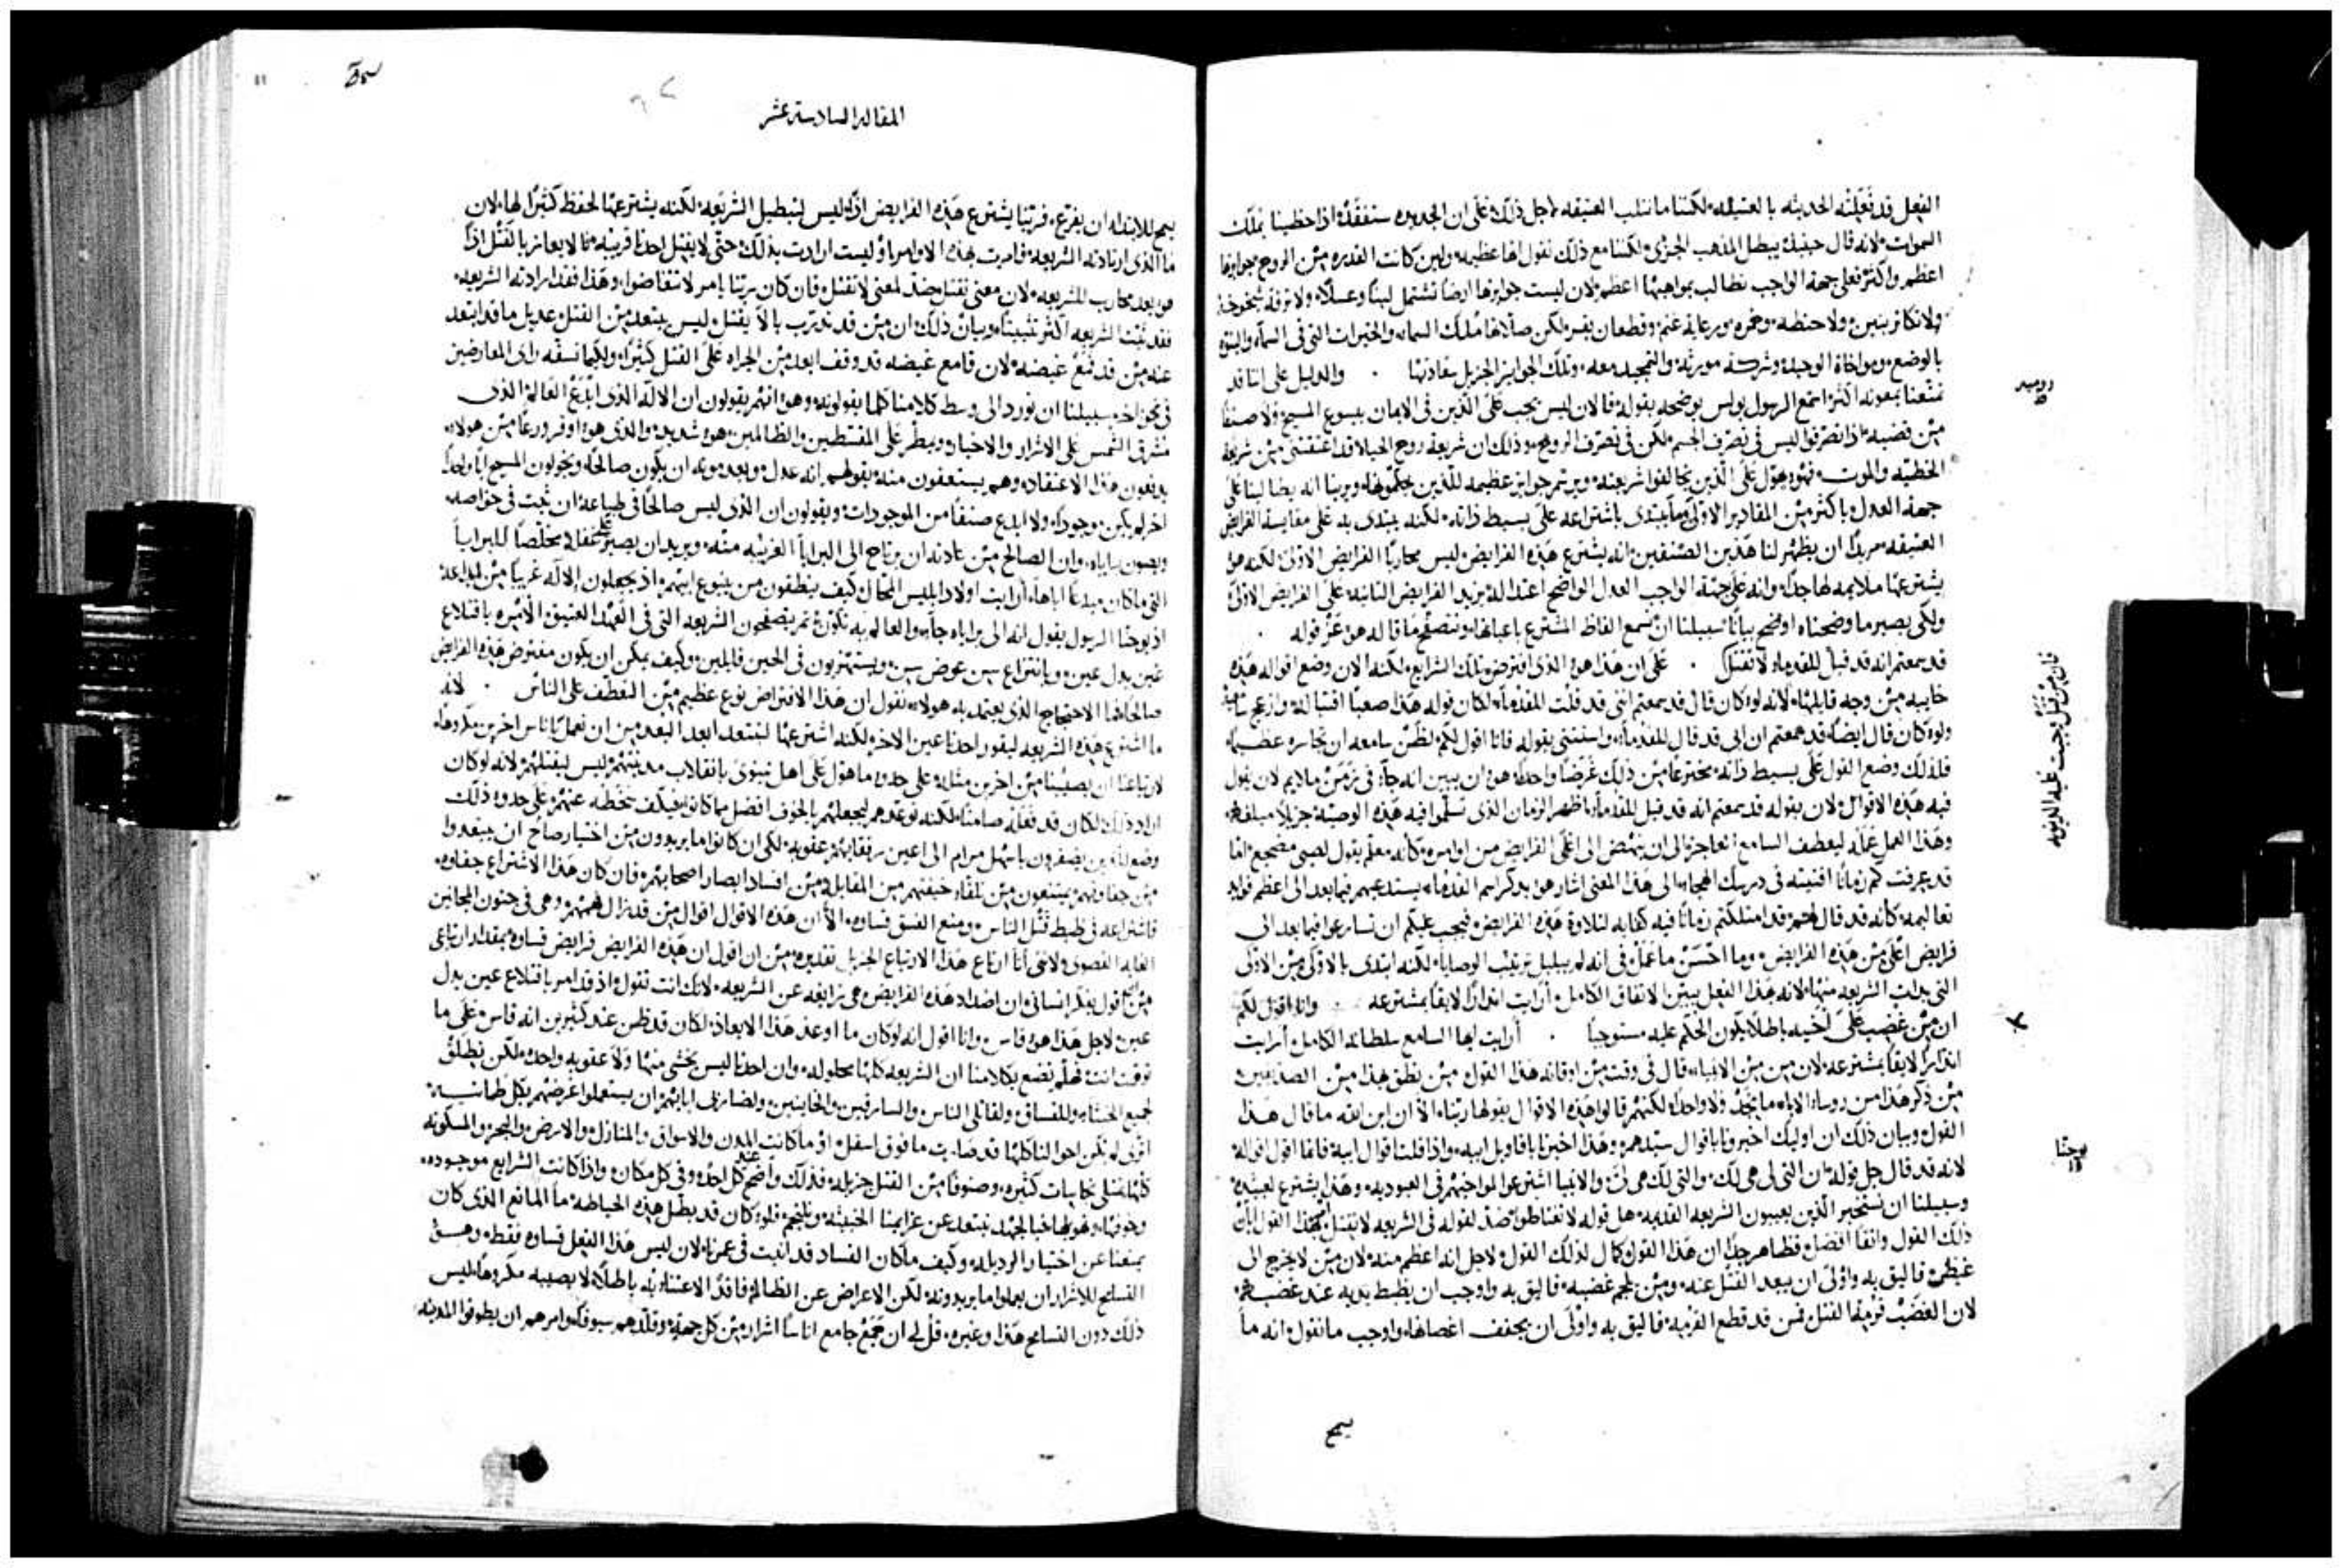 الفعل قد فعلته الحديثه بالعتيقه لكننا ما نثلب العتيقه لاجل ذلك على ان الجديده ستفقد اذا حظينا بملك
السموات لانه قال حينئذ يبطل المذهب الجزئ ولكننا مع ذلك نقول انها عظيمه ولين كانت القدره من الروح جوايزها
اعظم واكثر فعلى جهة الواجب نطالب بمواجبها اعظم لان ليست جوايزها ارضا تشتمل لبنا وعسلا ولا ترفه شيخوخة
ولا تكاثر بنين ولا حنطه وخمر ورعاية غنم وقطعان بقر لكن صلاتها ملك السماء والخيرات التى فى السماء والبنوة
بالوضع ومواخاة الوحيد وشركة موريثه والتمجيد معه وتلك الجوايز الجزيل تعادنها . والدليل على اننا قد
تمتعنا بمعونه اكثر اسمع الرسول بولس يوضحه بقوله فالان ليس يجب على الذين فى الايمان بيسوع المسيح ولا صنفا
من قضيه اذا تصرفوا ليس فى تصرف الجسم لكن فى تصرف الروح وذلك ان شريعة روح الحياه قد اعتقتنى من شريعة
الخطيه والموت فهو هول على الذين يخالفوا شريعته ويرتب جوايز عظيمه للذين يحكموها ويرينا انه يطالبنا على
جهة العدل باكثر من المقادير الاولى وما يبتدى باشتراعه على بسيط ذاته لكنه يبتدى به على مقايسة الفرايض
العتيقه مريدا ان يظهر لنا هذين الصنفين انه يشترع هذه الفرايض ليس محاربا الفرايض الاولى لكنه هو
يشترعها ملايمه لها جدا وانه على جهة الواجب العدل الواضح اعتداله يزيد الفرايض الثانيه على الفرايض الاولى
ولكى يصير ما وضحناه اوضح بيانا سبيلنا ان نسمع الفاظ المشترع باعيانها ونتصفح ما قاله هو عز قوله .
قد سمعتم انه قد قيل للقدماء لا تقتل . على ان هذا هو الذى افترض تلك الشرايع لكنه الان وضع اقواله هذه
خاييه من وجه قايلها لانه لو كان قال قد سمعتم اننى قد قلت للقدماء لكان قوله هذا صعبا اقتباله وازعج سامعيه
ولو كان قال ايضا قد سمعتم ان ابى قد قال للقدماء واستثنى بقوله فانا اقول لكم لظن سامعه ان تجاسره عظيما
فلذلك وضع القول على بسيط ذاته مخترعا من ذلك غرضا واحدا هو ان يبين انه جاء فى زمن ملايم لان يقول
فيه هذه الاقوال لان بقوله قد سمعتم انه قد قيل للقدماء اظهر الزمان الذى تسلموا فيه هذه الوصيه جزيلا مبلغه
وهذا العمل عمله ليعطف السامع العاجز الى ان ينهض الى اعلى الفرايض من اوامره كانه معلم يقول لصبى مضجع اما
قد عرفت كم زمانا افنيته فى درسك الهجاء الى هذا المعنى اشار هو بذكر اسم القدماء يستدعيهم فيما بعد الى اعظم فوايد
تعاليمه كانه قد قال لهم قد امتلكتم زمانا فيه كفايه لتلاوة هذه الفرايض فيجب عليكم ان تسارعوا فيما بعد الى
فرايض اعلى من هذه الفرايض وما احسن ما عمل فى انه لم يبلبل ترتيب الوصايا لكنه ابتدى بالاولى من الاولى
التى بدات الشريعه منها لانه هذا الفعل يبين الاتفاق الكامل ارايت انذارا لايقا بمشترعه . وانا اقول لكم
ان من غضب على اخيه باطلا يكون الحكم عليه مستوجبا . ارايت ايها السامع سلطانه الكامل ارايت
انذارا لايقا بمشترعه لان من من الانبياء قال فى وقت من اوقاته هذا القول من نطق بهذا من الصديقين
من ذكر هذا من روساء الاباء ما يجد ولا واحدا لكنهم قالوا هذه الاقوال يقولها ربنا الا ان ابن الله ما قال هذا
القول وبيان ذلك ان اوليك اخبرونا باقوال سيدهم وهذا اخبرنا باقاويل ابيه واذا قلنا قوال ابيه فانما اقول اقواله
لانه قد قال جل قوله ان التى لى هى لك والتى لك هى لى والانبيا اشترعوا لمواخيهم فى العبوديه وهذا يشترع لعبيده
وسبيلنا ان نستخبر الذين يعيبون الشريعه القديمه هل قوله لا تغتاظوا ضد لقوله فى الشريعه لا تقتل
ذلك القول واتقا افضل فظاهر جدا ان هذا القول كمال لذلك القول ولاجل انه اعظم منه لان من لا يخرج الى
غيظ فاليق به واولى ان يبعد القتل عنه ومن يلجم غضبه فاليق به واوجب ان يظبط يديه عند غضبه
لان الغضب قرمه القتل فمن قد قطع القرميه فاليق به واولى ان يجفف اغصانها واوجب ما نقول انه ما
يجى
روميه
فان من قبل وجبت عليه الدينونه
يوحنا
المقاله السادسه عشر
يجى للابتدا ان يفرع فربنا يشترع هذه الفرايض اذا ليس لتبطيل الشريعه لكنه يشترعها لحفظ كثيرا لها لان
ما الذى ارتادته الشريعه فامرت بهذه الاوامر او ليست ارادت بذلك حتى لا يقتل احدنا قريبه
هو بعد محارب للشريعه لان معنى نقتل ضد لمعنى لا نقتل فان كان ربنا يامر لا تتغاضوا وهذا فقد ارادته الشريعه
فقد ثبت الشريعه اكثر تثبيتا وبيان ذلك ان من قد تدرب بالا يقتل ليس يبتعد من القتل عديل ما قد ابتعد
عنه من قد قمع غيضه لان قامع غيضه قد وقف ابعد من الجراه على القتل كثيرا ولكيما نسفه راى المعارضين
فى نحو اخر سبيلنا ان نورد الى وسط كلامنا كلما يقولونه وهو انهم يقولون ان الاله الذى ابدع العالم الذى
تشرق الشمس على الاشرار والاخيار ويمطر على المقسطين والظالمين هو شرير والذى هو اوفر ورعا من هولاء
يدفعون هذا الاعتقاد وهم يستعفون منه بقولهم انه عدل ويعدمونه ان يكون صالحا ويخولون المسيح ابا واحدا
اخر لم يكن موجودا ولا ابدع صنفا من الموجودات ويقولون ان الذى ليس صالحا فى طباعه ان ثبت فى خواصه
ويصون براياه وان الصالح من عادته ان يرتاح الى البرايا الغريبه منه ويريد ان يصير على غفله مخلصا للبرايا
التى ما كان مبدعا اياها ارايت اولاد ابليس المحال كيف ينطقون من ينبوع ابيهم اذ يجعلون الاله غريبا من ابداعه
اذ يوحنا الرسول يقول انه الى براياه جاء والعالم به تكون ثم يتصفحون الشريعه التى فى العهد العتيق الامره باقتلاع
عين بدل عين وبانتزاع سن عوض سن ويستهزيون فى الحين قايلين وكيف يمكن ان يكون مفترض هذه الفرايض
صالحا فما الاحتجاج الذى يعتمد به هولاء نقول ان هذا الافتراض نوع عظيم من التعطف على الناس . لانه
ما اشترع هذه الشريعه ليقور احدنا عين الاخر لكنه اشترعها لنبتعد ابعد البعد من ان نعمل باناس اخرين مكروها
لارتياعنا ان يصيبنا من اخرين مثله وعلى حدو ما هول على اهل نينوى بانقلاب مدينتهم ليس ليقتلهم لانه لو كان
اراد ذلك لكان قد فعله صامتا لكنه توعدهم ليجعلهم بالخوف افضل مما كانوا فيكف سخطه عنهم على حدو ذلك
وضع للذين يضفرون باسهل مرام الى اعين رفقايهم عقوبه لكى ان كانوا ما يريدون من اختيار صالح ان يبتعدوا
من جفاوتهم يمتنعون من تلقاء خيفتهم من المقابله من افساد ابصار اصحابهم فان كان هذا الاشتراع جفاوه
فاشتراعه فى ظبط قتل الناس ومنع الفسق قساوه الا ان هذه الاقوال اقوال من قد زال فهمهم وهى فى جنون المجانين
الغايه القصوى ولاننى انا ارتاع هذا الارتياع الجزيل تقديره من ان اقول ان هذه الفرايض فرايض قساوه بمقدار ارتياعى
من ان اقول بفكر انسانى ان اضداد هذه الفرايض هى زايغه عن الشريعه لانك انت تقول اذ قد امر باقتلاع عين بدل
عين لاجل هذا هو قاس وانا اقول انه لو كان ما اوعد هذا الابعاد لكان قد ظن عند كثيرين انه قاس على ما
توقت انت فهلم نضع بكلامنا ان الشريعه كلها محلوله وان احدنا ليس يخشى منها ولا عقوبه واحده لكن نطلق
لجميع الخبثاء وللفساق ولقاتلى الناس والسارقين والخاينين ولضاربى ابايهم ان يستعملوا غرضهم بكل طمانينه
اترى لم تكن احوالنا كلها قد صارت ما فوق اسفل او ما كانت المدن والاسواق والمنازل والارض والبحر والمسكونه
كلها تمتلى نجاسات كثيره وصنوفا من القتل جزيله فذلك واضح عند كل احد وفى كل مكان واذا كانت الشرايع موجوده
وخوفها وتهويلها فبالجهد نبتعد عن عزايمنا الخبيثه ونلجم فلو كان قد بطل هذه الحياطه ما المانع الذى كان
يمنعنا عن اختيار الرذيله وكيف ما كان الفساد قد انبت فى عمرنا لان ليس هذا الفعل قساوه فقط وهو
التسامح للاشرار ان يعملوا ما يريدونه لكن الاعراض عن الظالم فاقدا الاعتناء به باطلا لا يصيبه مكروها ليس
ذلك دون التسامح هذا وغيره قل لى ان جمع جامع اناسا اشرارا من كل جهة وقلدهم سيوفا وامرهم ان يطوفوا المدينه